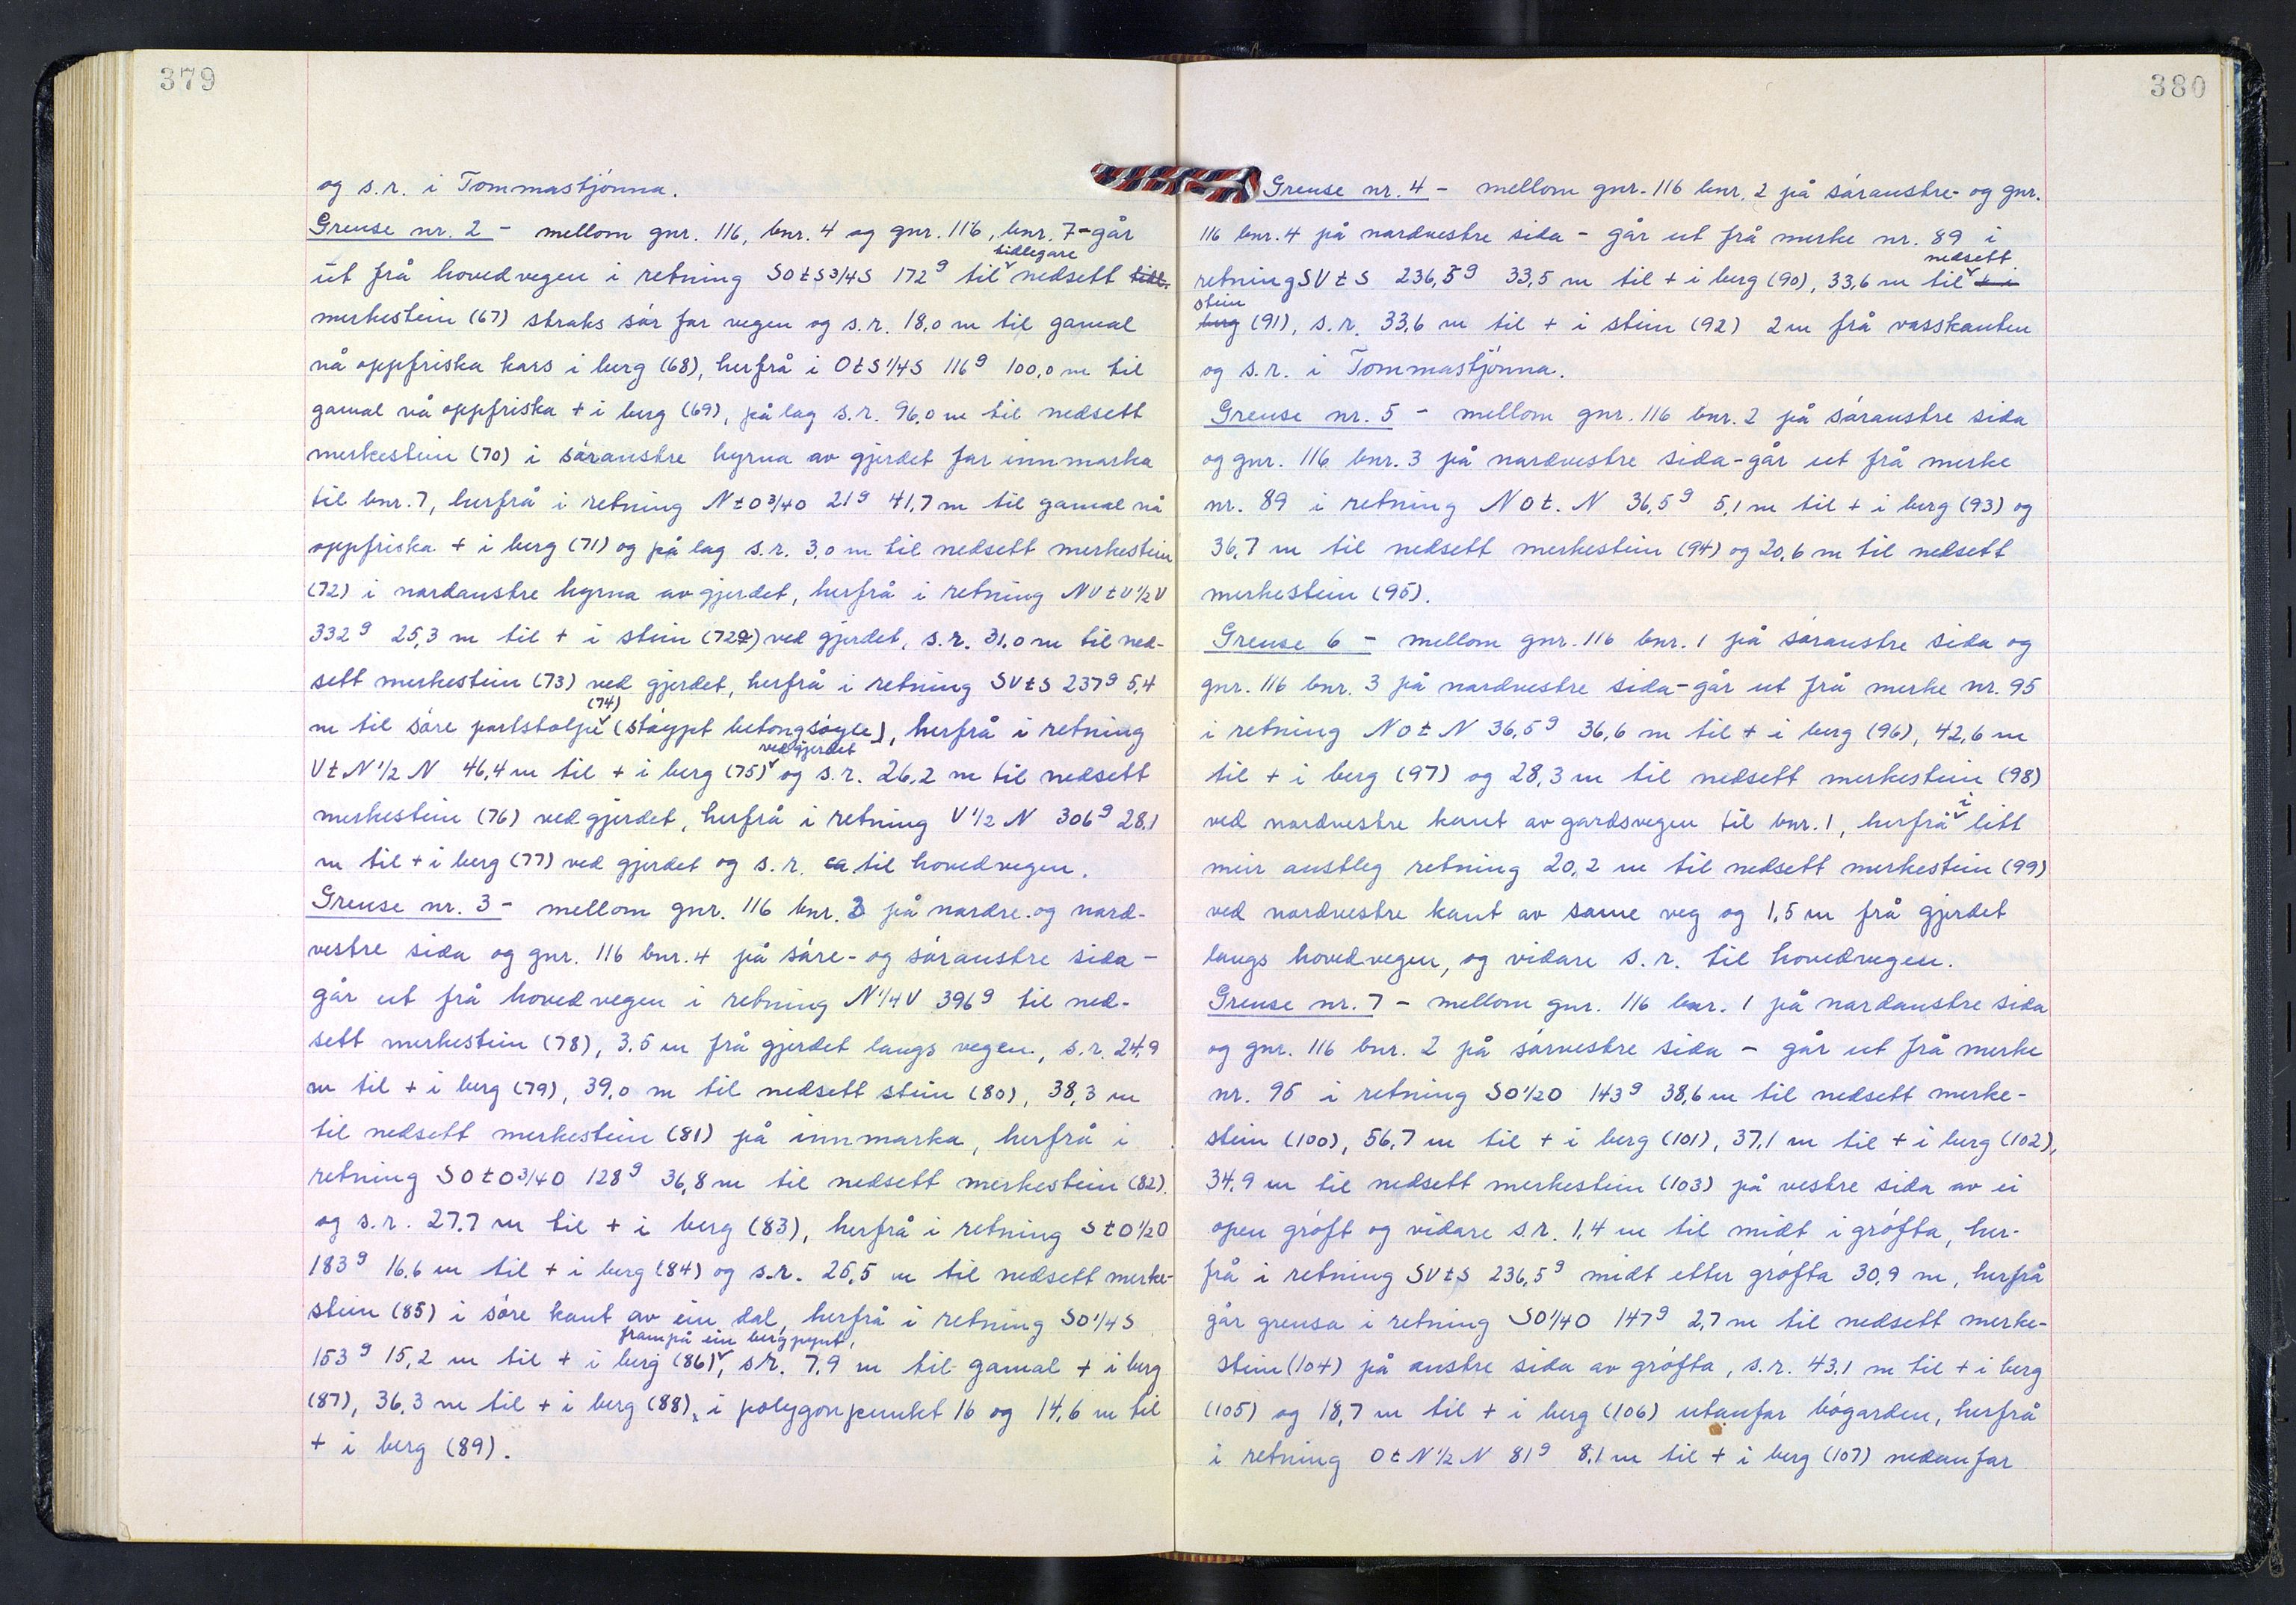 379
og s.r. i Tommastjónna.
Grense nr. 2 - mellom gnr. 116, bnr. 4 og gnr. 116, bnr. 7 - går
ut frå hovedvegen i retning SOtS3/4S 172g til tidlegare nedsett tidl.
merkestein (67) straks sór for vegen og s.r. 18,0 m til gamal
nå oppfriska kors i berg (68), herfrå i OtS1/4S 116g 100,0 m til
gamal nå oppfriska + i berg (69), på lag s.r. 96,0 m til nedsett
merkestein (70) i sóraustre hyrna av gjerdet for innmarka
til bnr. 7, herfrå i retning NtO3/4O 21g 41,7 m til gamal nå
oppfriska + i berg (71) og på lag s.r. 3,0 m til nedsett merkestein
(72) i nordaustre hyrna av gjerdet, herfrå i retning NVtV1/2V
332g 25,3 m til + i stein (72a) ved gjerdet, s.r. 31,0 m til ned-
sett merkestein (73) ved gjerdet, herfrå i retning SVtS 237g 5,4
m til sóre portstolpe (74) (stóypt betongsóyle), herfrå i retning
VtN1/2N 46,4 m til + i berg (75) ved gjerdet og s.r. 26,2 m til nedsett
merkestein (76) ved gjerdet, herfrå i retning V1/2N 306g 28,1
m til + i berg (77) ved gjerdet og s.r. ca til hovedvegen.
Grense nr. 3 - mellom gnr. 116 bnr. 3 på nordre- og nord-
vestre sida og gnr. 116 bnr. 4 på sóre- og sóraustre sida -
går ut frå hovedvegen i retning N1/4V 396g til ned-
sett merkestein (78), 3,5 m frå gjerdet langs vegen, s.r. 24,9
m til + i berg (79), 39,0 m til nedsett stein (80), 38,3 m
til nedsett merkestein (81) på innmarka, herfrå i
retning SOtO3/4O 128g 36,8 m til nedsett merkestein (82).
og s.r. 27,7 m til + i berg (83), herfrå i retning StO1/2O
183g 16,6 m til + i berg (84) og s.r. 25,5 m til nedsett merke-
stein (85) i sóre kant av ein dal, herfrå i retning SO1/4S
153g 15,2 m til + i berg (86) frampå ein bergpynt, s.r. 7,9 m til gamal + i berg
(87), 36,3 m til + i berg (88), i polygonpunkt 16 og 14,6 m til
+ i berg (89).
380
Grense nr. 4 - mellom gnr. 116 bnr. 2 på sóraustre- og gnr.
116 bnr. 4 på nordvestre sida - går ut frå merke nr. 89 i
retning SVtS 236,5g 33,5 m til + i berg (90), 33,6 m til nedsett + i
stein berg (91), s.r. 33,6 m til + i stein (92) 2 m frå vasskanten
og s.r. i Tommastjónna.
Grense nr. 5 - mellom gnr. 116 bnr. 2 på sóraustre sida
og gnr. 116 bnr. 3 på nordvestre sida - går ut frå merke
nr. 89 i retning NOt.N 36,5g 5,1 m til + i berg (93) og
36,7 m til nedsett merkestein (94) og 20,6 m til nedsett
merkestein (95).
Grense 6 - mellom gnr. 116 bnr. 1 på sóraustre sida og
gnr. 116 bnr. 3 på nordvestre sida - går ut frå merke nr. 95
i retning NOtN 36,5g 36,6 m til + i berg (96), 42,6 m
til + i berg (97) og 28,3 m til nedsett merkestein (98)
ved nordvestre kant av gardsvegen til bnr. 1, herfrå i litt
meir austleg retning 20,2 m til nedsett merkestein (99)
ved nordvestre kant av same veg og 1,5 m frå gjerdet
langs hovedvegen, og vidare s.r. til hovedvegen.
Grense nr. 7 - mellom gnr. 116 bnr. 1 på nordaustre sida
og gnr. 116 bnr. 2 på sórvestre sida - går ut frå merke
nr. 95 i retning SO1/2O 143g 38,6 m til nedsett merke-
stein (100), 56,7 m til + i berg (101), 37,1 m til + i berg (102),
34,9 m til nedsett merkestein (103) på vestre sida av ei
open gróft og vidare s.r. 1,4 m til midt i grófta, her-
frå i retning SVtS 236,5g midt etter grófta 30,9 m, herfrå
går grensa i retning SO1/4O 147g 2,7 m til nedsett merke-
stein (104) på austre sida av grófta, s.r. 43,1 m til + i berg
(105) og 18,7 m til + i berg (106) utanfor bógarden, herfrå
i retning OtN1/2N 81g 8,1 m til + i berg (107) nedanfor